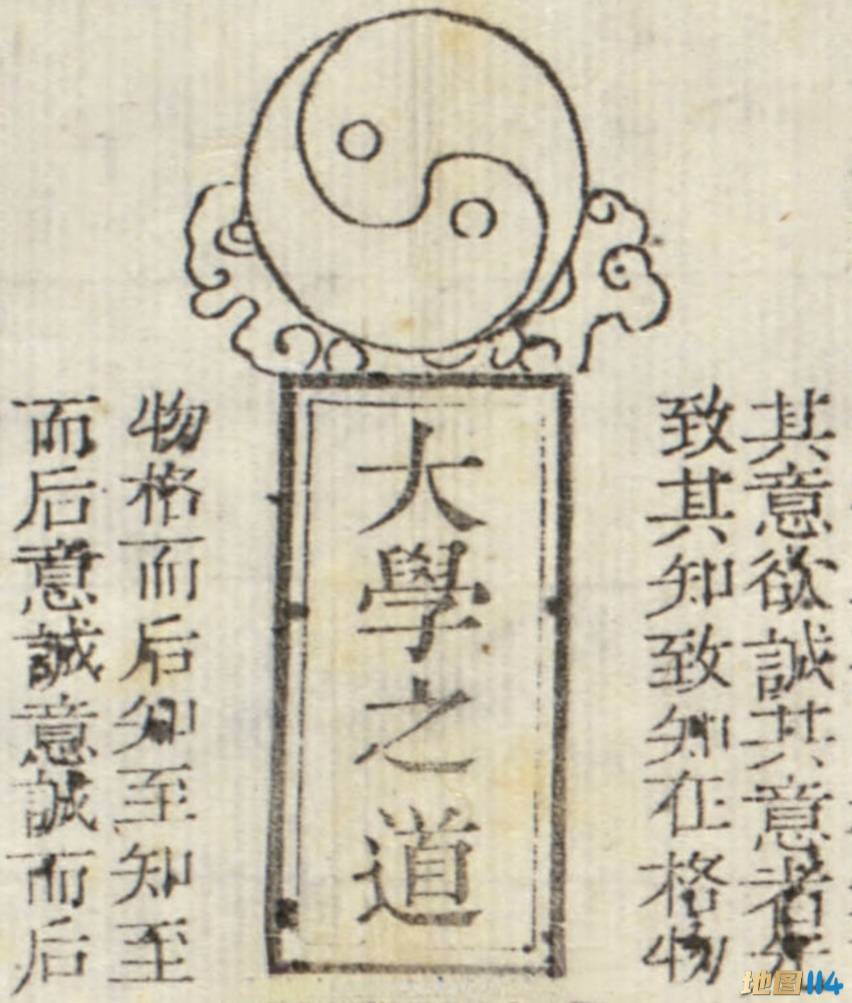 其意欲誠其意者先
致其知致知在格物
大學之道
物格而后知至知至
而后意誠意誠而后
地图114